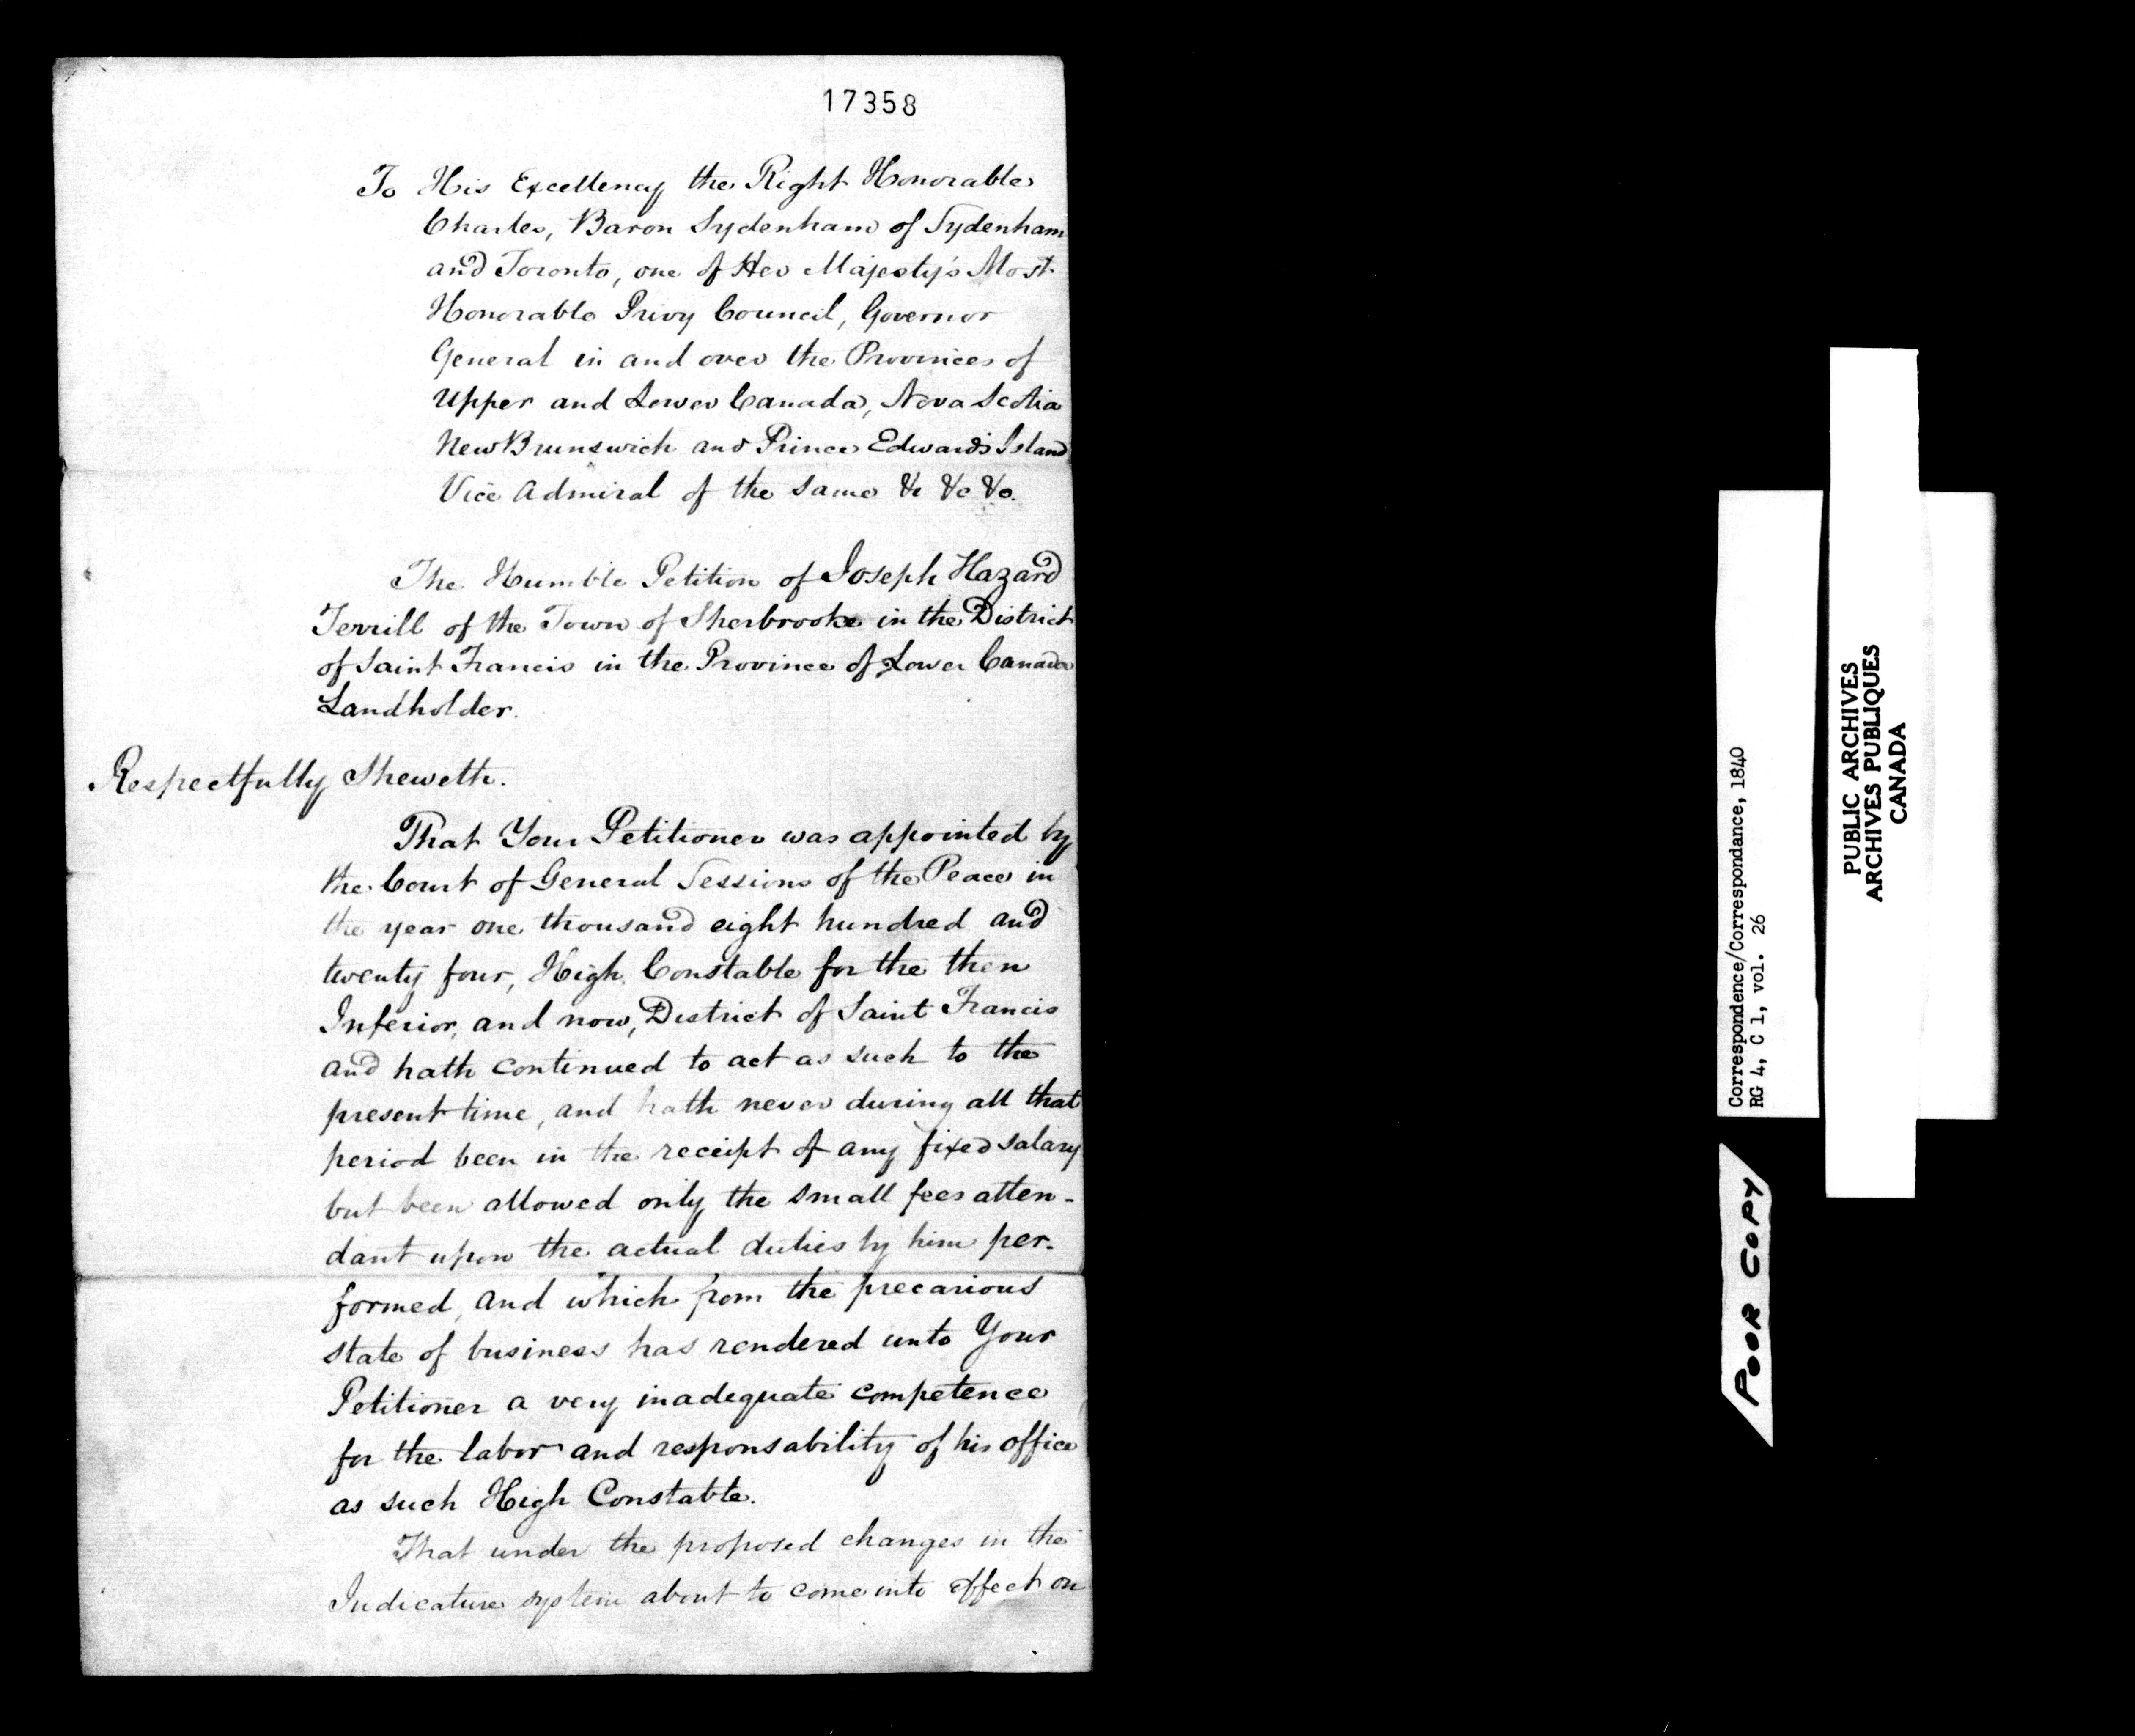 17358
To His Excellency the Right Honorable
Charles, Baron Sydenham of Sydenham
and Toronto, one of Her Majesty's Most
Honorable Privy Council, Governor
General in and over the Provinces of
Upper and Lower Canada, Nova Scotia
New Brunswick and Prince Edward's Island
Vice Admiral of the same &c &c &c.
The Humble Petition of Joseph Hazard
Terrill of the Town of Sherbrooke in the District
of Saint Francis in the Province of Lower Canada
Landholder.
Respectfully Sheweth.
That Your Petitioner was appointed by
the Court of General Sessions of the Peace in
the year one thousand eight hundred and
twenty four, High Constable for the then
Inferior, and now, District of Saint Francis
and hath continued to act as such to the
present time, and hath never during all that
period been in the receipt of any fixed salary
but been allowed only the small fees atten-
dant upon the actual duties by him per-
formed, and which from the precarious
state of business has rendered unto Your
Petitioner a very inadequate competence
for the labor and responsability of his office
as such High Constable.
That under the proposed changes in the
Judicature system about to come into effect on
Correspondence/Correspondance, 1840
RG 4, C 1, vol. 26
PUBLIC ARCHIVES
ARCHIVES PUBLIQUES
CANADA
POOR COPY